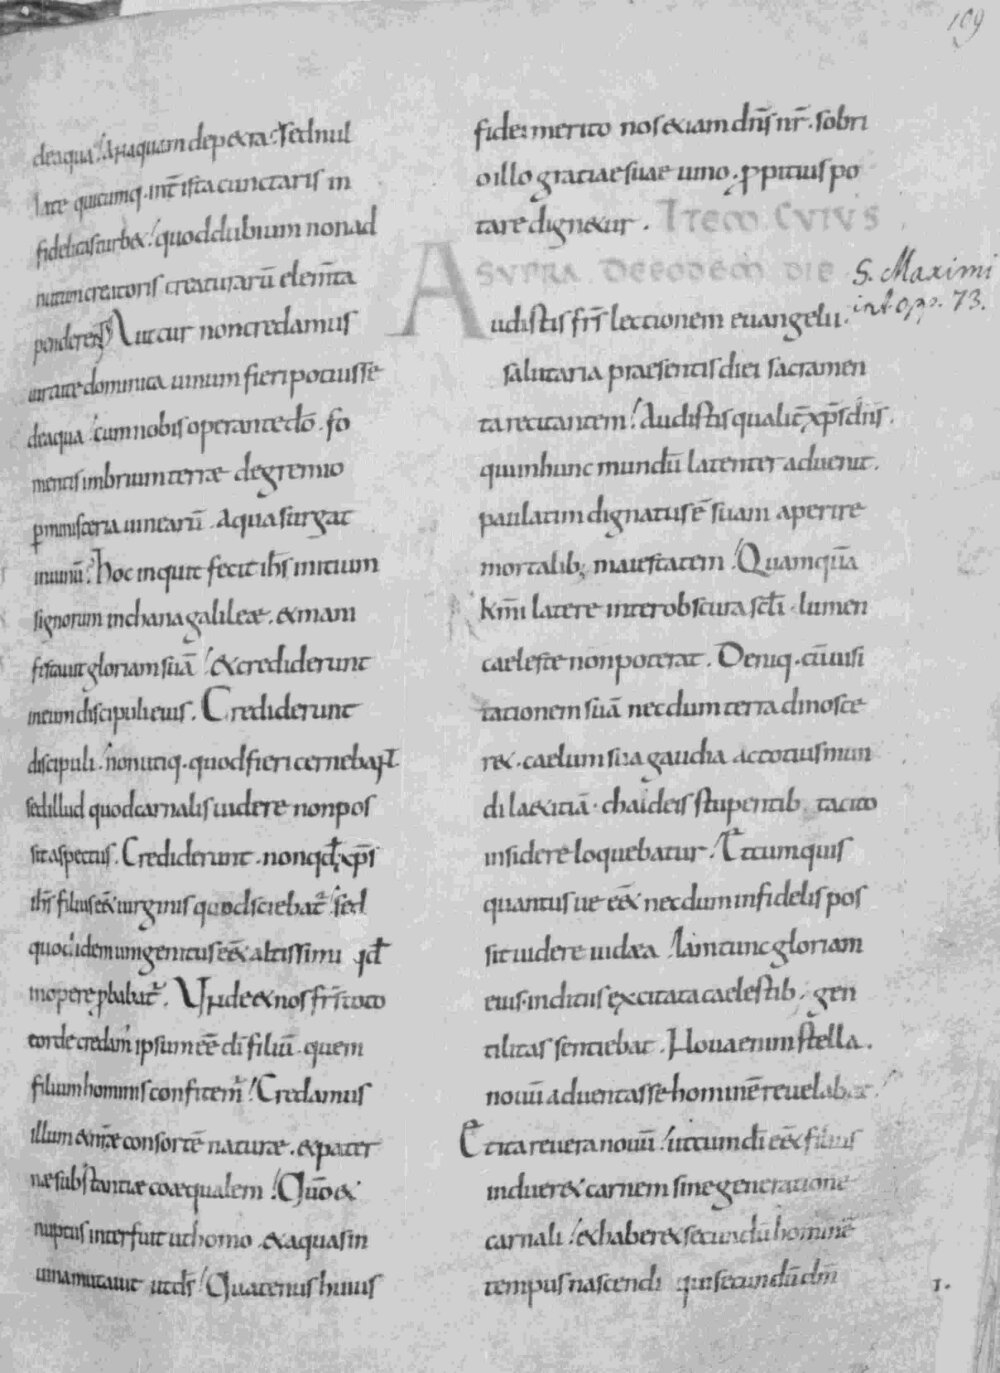 109
deaqua. Aliaquam depetra. Sed nul
late quicumq. inť ista cunctaris in
fidelitas turbet. quod dubium non ad
nutum creatoris creaturarū elem̄ta
ponderens. Aut cur non credamus
uirtute dominica uinum fieri potuisse
deaqua. cum nobis operante dō. fo
mentis imbrium terræ de gremio
ꝑ ministeria uinearū. aqua surgat
inuinū. hoc inquit fecit ih̄s initium
signorum in chana galileæ. & mani
festauit gloriam suā. & crediderunt
in eum discipuli eius. Crediderunt
discipuli. non utiq. quod fieri cernebant
sed illud quod carnalis uidere non pos
sit aspectus. Crediderunt. non qđ xp̄s
ih̄s filius eēt uirginis quod sciebat. sed
quod idem unigenitus eēt altissimi qđ
in opere ꝓbabat. Unde & nos fr̄s toto
corde credam' ipsum eē dī filiū. quem
filium hominis confitem'. Credamus
illum & nr̄æ consortē naturæ. & pater
næ substantiæ coæqualem. Quō &
nuptiis interfuit ut homo. & aquas in
uina mutauit ut ds̄. Quatenus huius
fidei merito nos etiam dn̄s nr̄. sobri
o illo gratiae suae uino. ꝓpitius po
tare dignetur. ITEM CUIUS
SUPRA DE EODEM DIE
S. Maximi
int. opp. 73.
Audistis fr̄s lectionem euangelii.
salutaria praesentis diei sacramen
ta recitantem. Audistis qualit̄ xp̄s dn̄s.
qui in hunc mundū latenter aduenit.
paulatim dignatus ē suam aperire
mortalib; maiestatem. Quamquā
km̄i latere inter obscura sc̄li. lumen
caeleste non poterat. Deniq. cū uisi
tationem suā necdum terra dinosce
ret. caelum sua gaudia ac totius mun
di laetitiā. chaldeis stupentib. tacito
in sidere loquebatur. Et cum quis
quantus ue eēt necdum infidelis pos
sit uidere iudæa. Iam tunc gloriam
eius. indiciis excitata caelestib. gen
tilitas sentiebat. Noua enim stella.
nouū aduentasse hominē reuelabat.
Et ita reuera nouū. ut cum dī eēt filius
induer& carnem sine generatione
carnali. & haber& secundū hominē
tempus nascendi qui secundū dm̄
1.